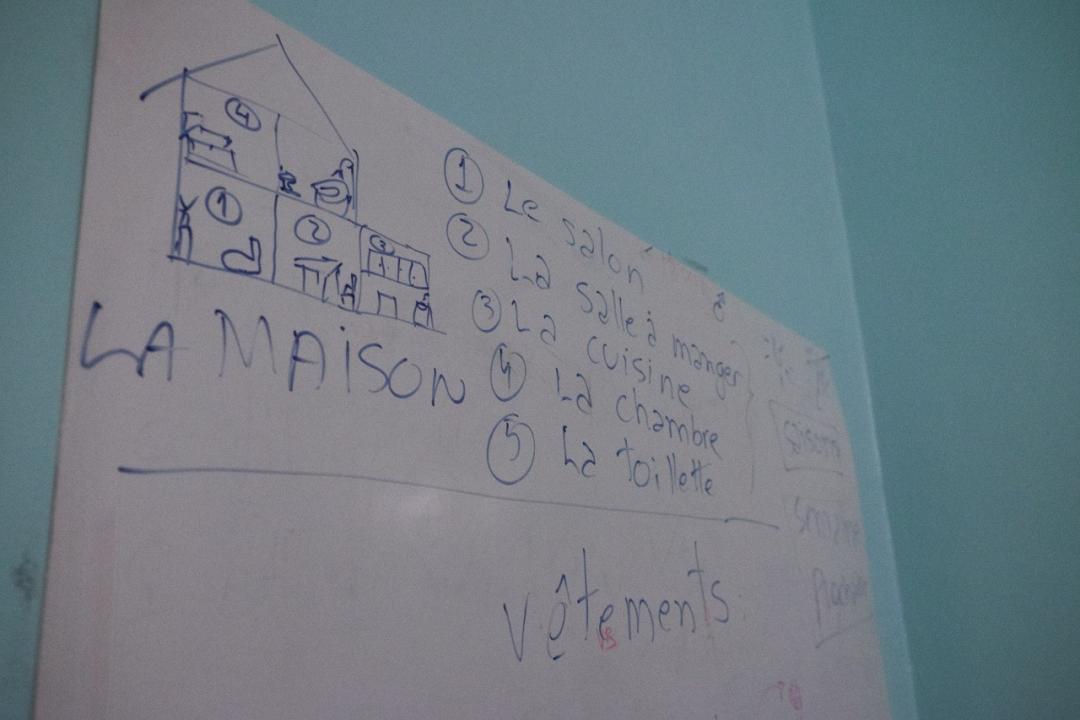 4
1
2
3
LA MAISON
① Le salon
② La salle à manger
③ La cuisine
④ La chambre
⑤ La toillette
vêtements
saisons